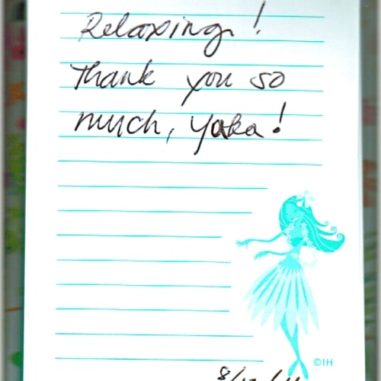 Relaxing!
Thank you so
much, Yoka!
©IH